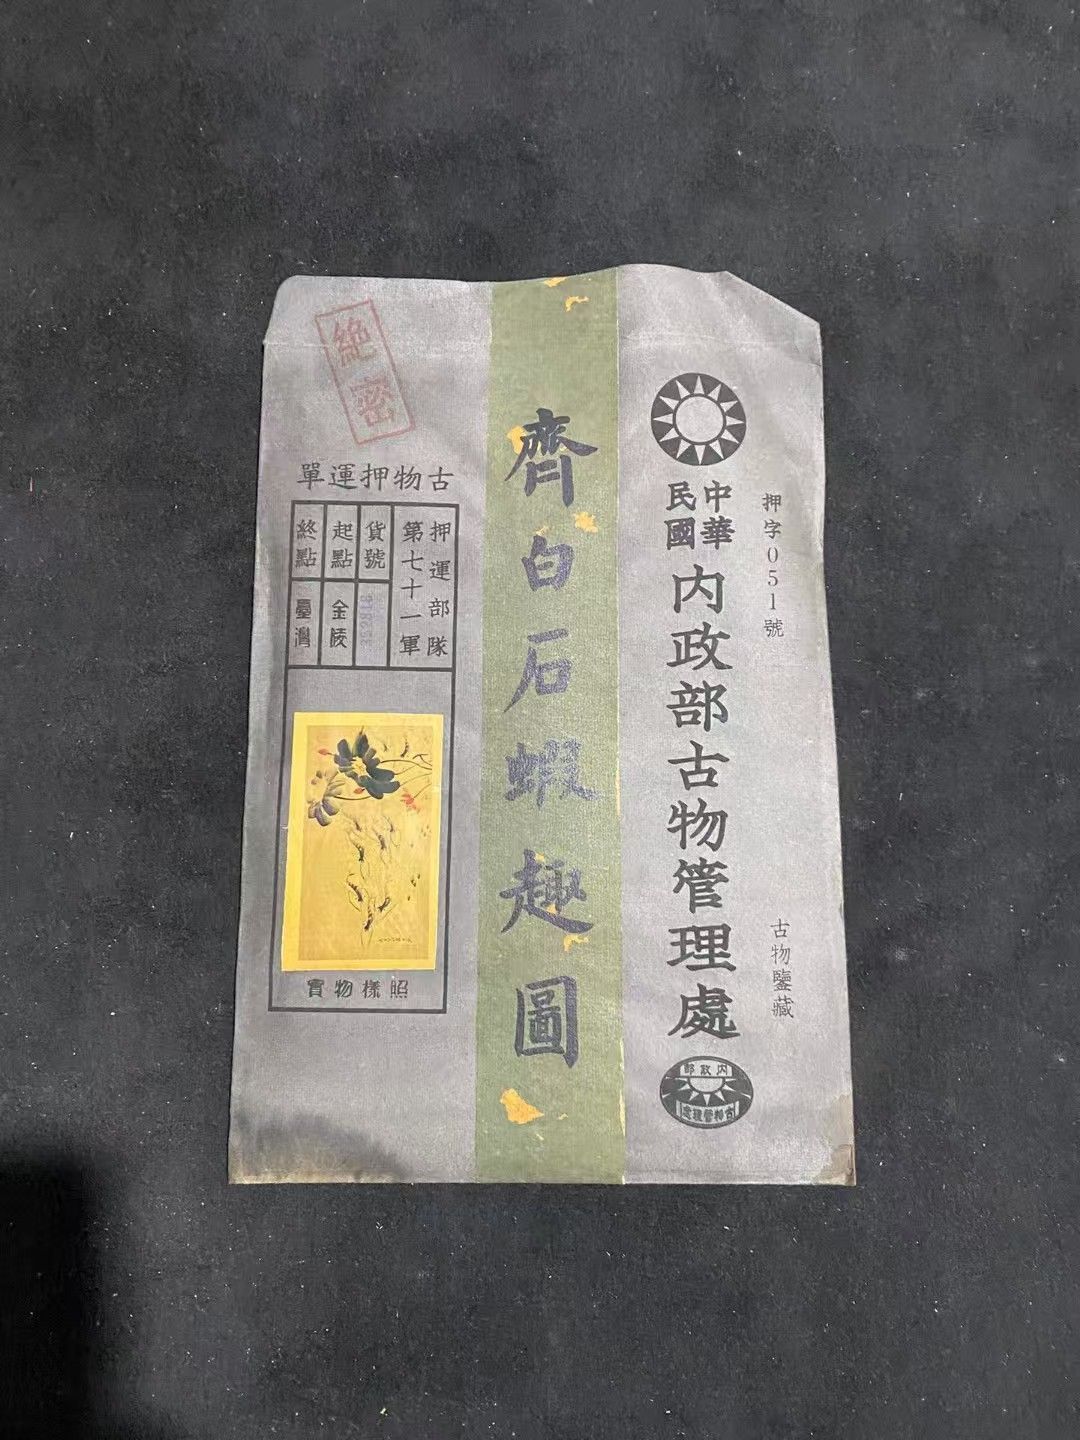 押字051號
古物鑒藏
中華
民國
內政部古物管理處
內政部
古物管理處
齊白石蝦趣圖
絕密
古物押運單
押運部隊
第七十一軍
貨號
起點
金陵
終點
臺灣
照樣物實